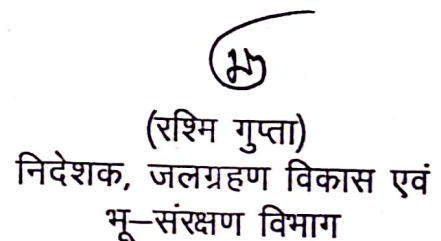 (रश्मि गुप्ता)
निदेशक, जलग्रहण विकास एवं
भू–संरक्षण विभाग